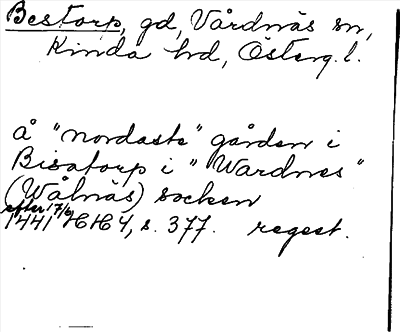 Bestorp, gd, Vårdnäs sn,
Kinda hd, Österg. l.
å "nordaste" gården i
Bisatorp i "Wardnes"
(Wålnäs) socken
efter 17/6
1441 HH 4, s. 377. regest.